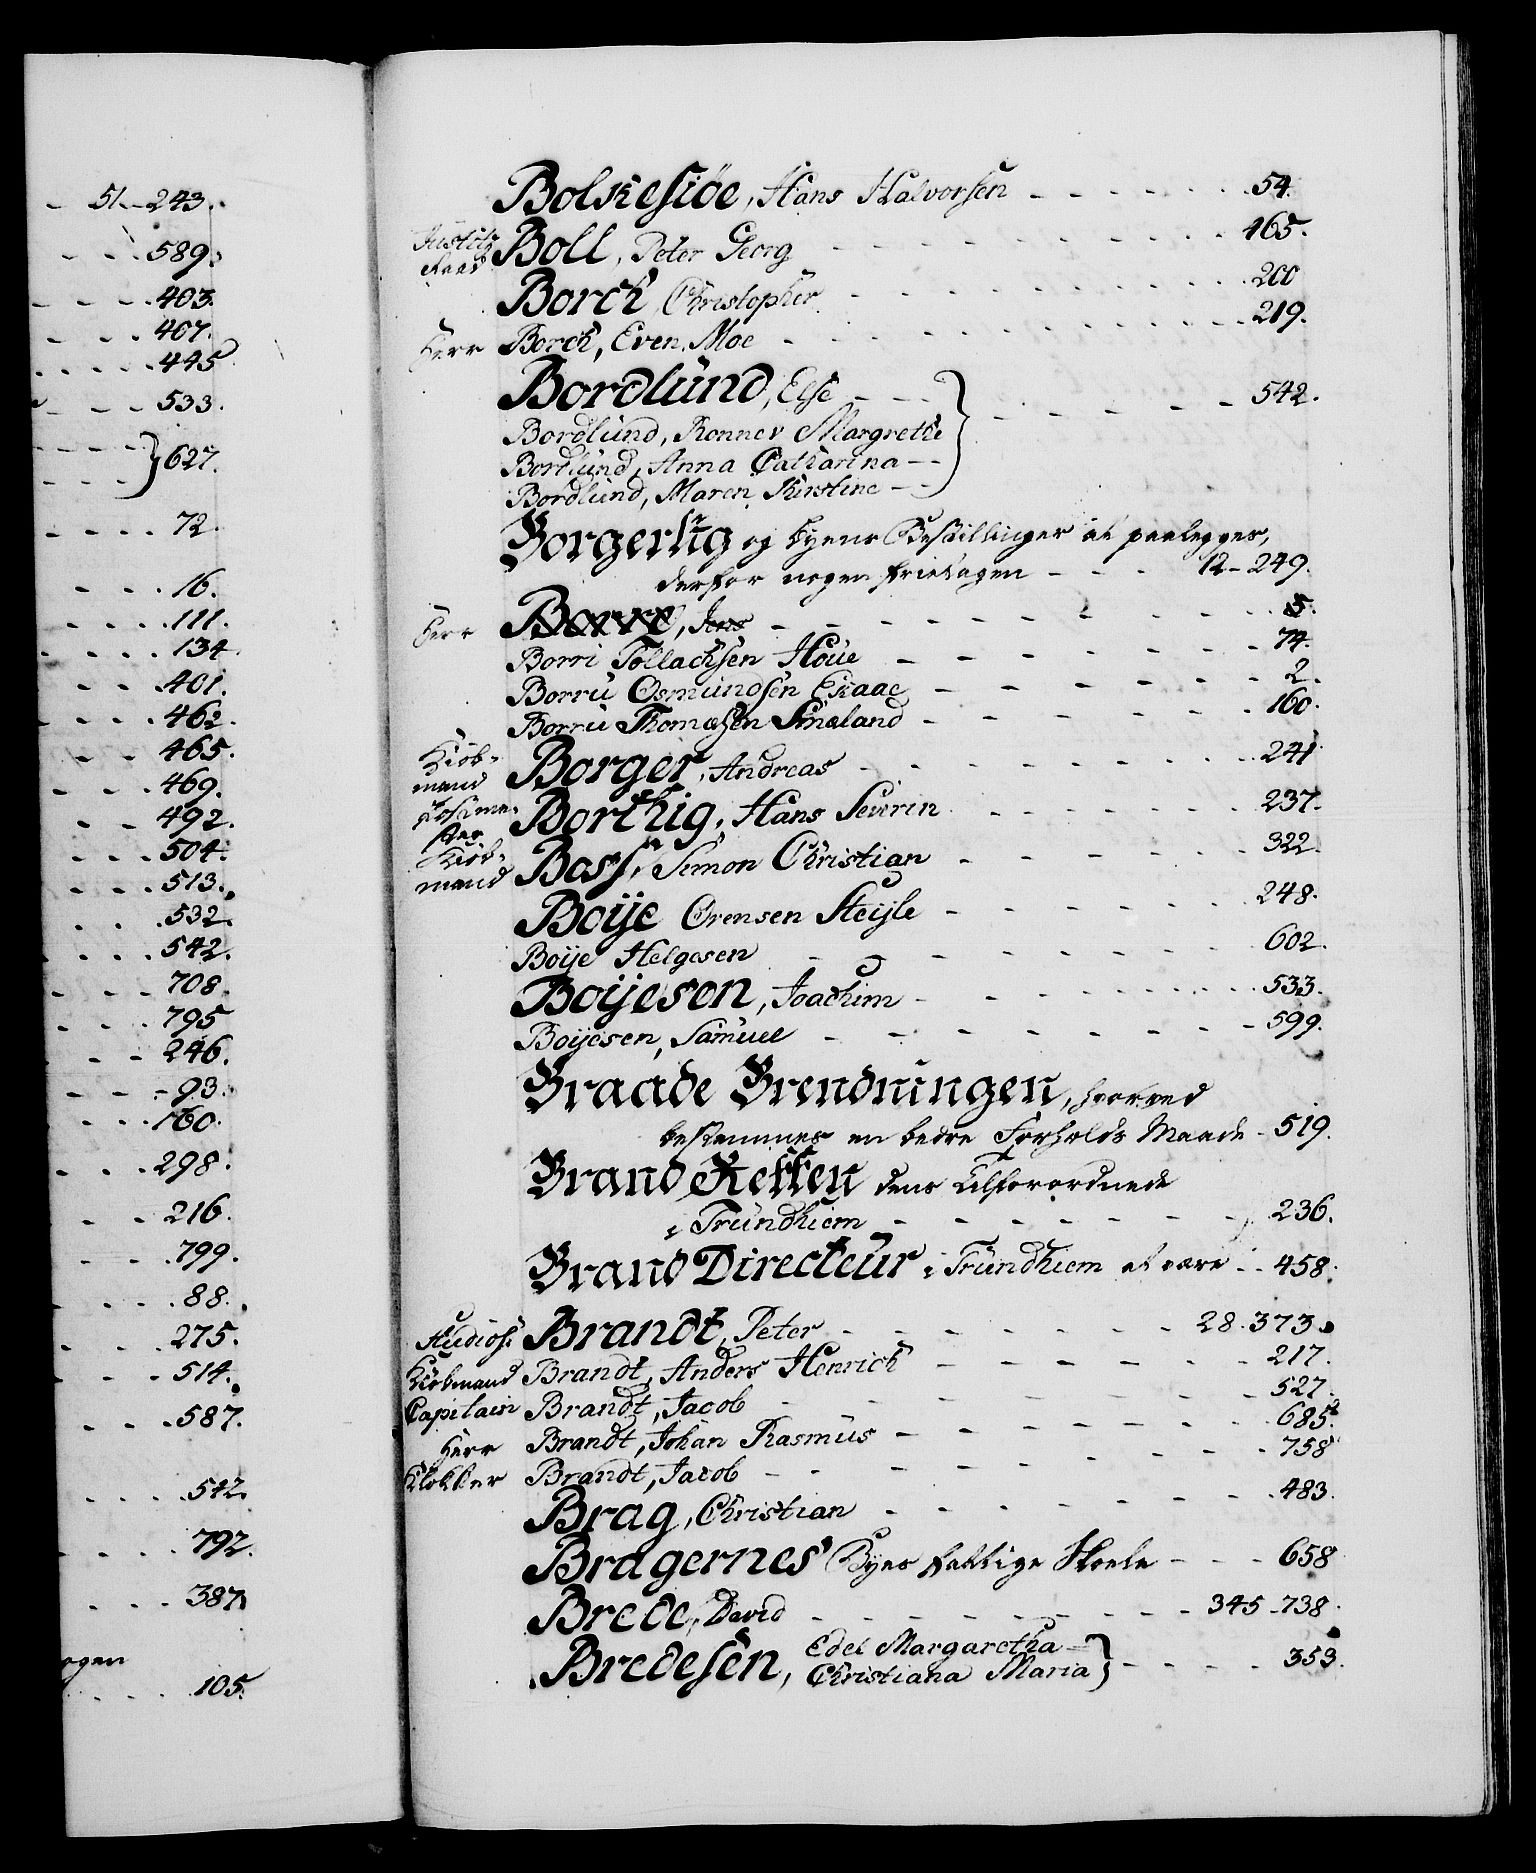 51 - 243.
589.
403.
407.
445
533.
627.
72.
16.
111.
134
401.
462.
465.
469.
492.
504.
513.
532.
542.
708.
795
246.
93.
160.
298.
216.
799.
88.
275.
514.
587.
542.
792.
387.
ogen
105.
Bolkesiöe, Hans Halvorsen - - - - 54.
Justitz Raad Boll, Peter Georg - - - - 465.
Borch, Christopher - - - - 200
Herr Borch, Even Moe - - - - 219.
Bordlund, Else - - - - 542.
Bordlund, Ronnev Margrethe
Bordlund, Anna Catharina
Bordlund, Maren Kirstine
Borgerlig og Byens Bestillinger at paalegges,
derfor nogen fritagen - - - 12 - 249.
Herr Borre, Jens - - - - 5.
Borri Tollachsen Houe - - - - 74.
Borru Osmundsen Ekaae - - - - 2.
Borru Thomæsen Smaland - - - - 160.
Kiöb-
mand Borger, Andreas - - - - 241
Postme-
ster Borthig, Hans Severin - - - - 237.
Kiöb-
mand Boss, Simon Christian - - - - 322.
Boije Orensen Steijle - - - - 248.
Boije Helgesen - - - - 602.
Boijesen, Joachim - - - - 533.
Boijesen, Samuel - - - - 599.
Braade Brendningen, hvorved
bestemmes en bedre Forholds Maade - 519.
Brand Retten dens Tilforordnede
i Trundhiem - - - - 236.
Brand Directeur i Trundhiem at være - - 458.
Studios: Brandt, Peter - - - - 28. 373.
Kiöbmand Brandt, Anders Henrich - - - - 217.
Capitain Brandt, Jacob - - - - 527.
Herr Brandt, Johan Rasmus - - - - 685.
Klokker Brandt, Jacob - - - - 758
Brag, Christian - - - - 483.
Bragernes Byes fattige Skole - - - 658
Brede, David - - - - 345 - 738.
Bredesen, Edel Margaretha
Christiana Maria - - - - 353.